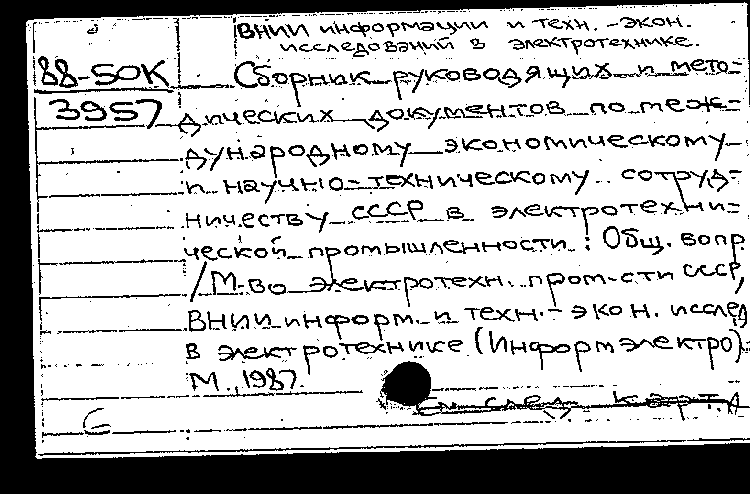 ВНИИ информации и техн.-экон.
исследований в электротехнике.
88-50К
3957
Сборник руководящих и мето-
дических документов по меж-
дународному экономическому
и научно-техническому сотруд-
ничеству СССР в электротехни-
ческой промышленности: Общ. вопр.
/М-во электротехн. пром-сти СССР,
ВНИИ информ. и техн.-экон. исслед.
в электротехнике (Информэлектро).-
М., 1987.
см след. карт.